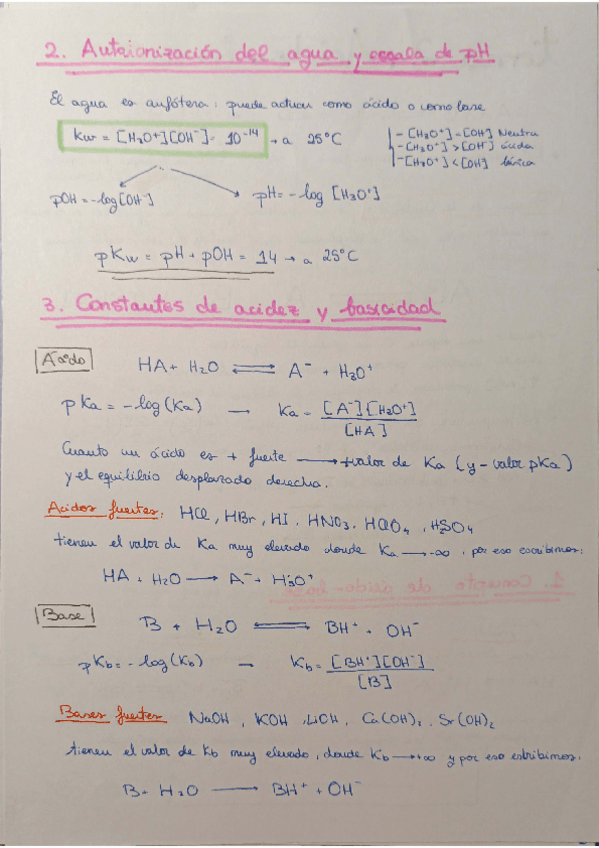 2. Autoionización del agua y escala de pH
El agua es anfótera: puede actuar como ácido o como base
Kw = [H₃O⁺][OH⁻] = 10⁻¹⁴ → a 25°C
- [H₃O⁺] = [OH⁻] Neutra
- [H₃O⁺] > [OH⁻] ácida
- [H₃O⁺] < [OH⁻] básica
pOH = -log[OH⁻] pH = -log [H₃O⁺]
pKw = pH + pOH = 14 → a 25°C
3. Constantes de acidez y basicidad
Ácido
HA + H₂O ⇌ A⁻ + H₃O⁺
pKa = -log(Ka) → Ka = [A⁻][H₃O⁺]
[HA]
Cuanto un ácido es + fuerte → +valor de Ka (y - valor pKa)
y el equilibrio desplazado derecha.
Acidos fuertes: HCl, HBr, HI, HNO₃, HClO₄, H₂SO₄
tienen el valor de Ka muy elevado donde Ka → ∞, por eso escribimos:
HA + H₂O → A⁻ + H₃O⁺
Base
B + H₂O ⇌ BH⁺ + OH⁻
pKb = -log(Kb) → Kb = [BH⁺][OH⁻]
[B]
Bases fuertes NaOH, KOH, LiOH, Ca(OH)₂, Sr(OH)₂
tienen el valor de Kb muy elevado, donde Kb → +∞ y por eso escribimos:
B + H₂O → BH⁺ + OH⁻